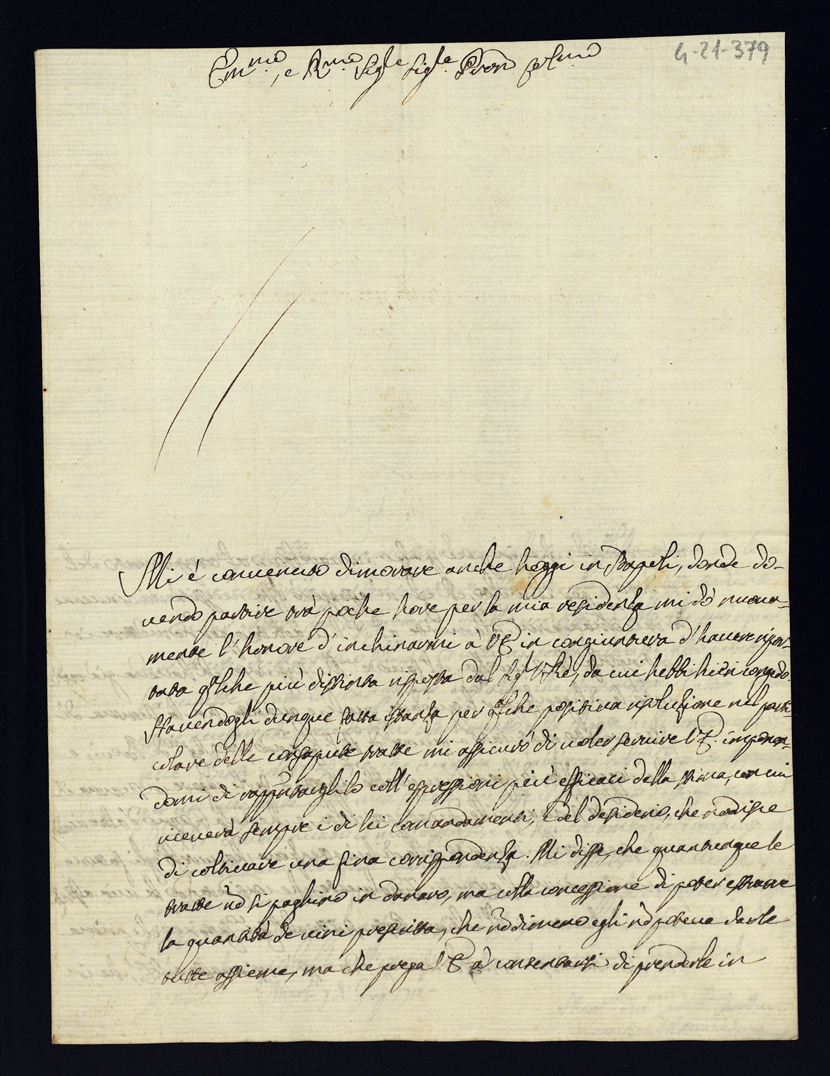 4-21-379
Em.mo, e R.mo Sig.re Sig.re Pron Col.mo
Mi è convenuto dimorare anche hoggi in Napoli, donde do-
vendo partire trà poche hore per la mia residenza mi dò nuova-
mente l'honore d'inchinarmi à V.E. in congiuntura d'havere ripor-
tata q.lche più distinta risposta dal Sig.r V.Rè, da cui hebbi hieri congedo.
Havendogli dunque fatta istanza per q.lche positiva risoluzione nel parti-
colare delle consapute tratte mi assicurò di voler servire l'E.V. imponen-
domi di rapp.ntarglielo coll'espressioni più efficaci della stima, con cui
riceverà sempre i di lei comandamenti, e del desiderio, che nodrisce
di coltivare una fina corrispondenza. Mi disse, che quantunque le
tratte nò si paghino in danaro, ma colla concessione di poter estrarre
la quantità de vini prescritta, che nòdimeno egli nò poteva darle
tutte assieme, ma che prega V.E. à contentarsi di prenderle in